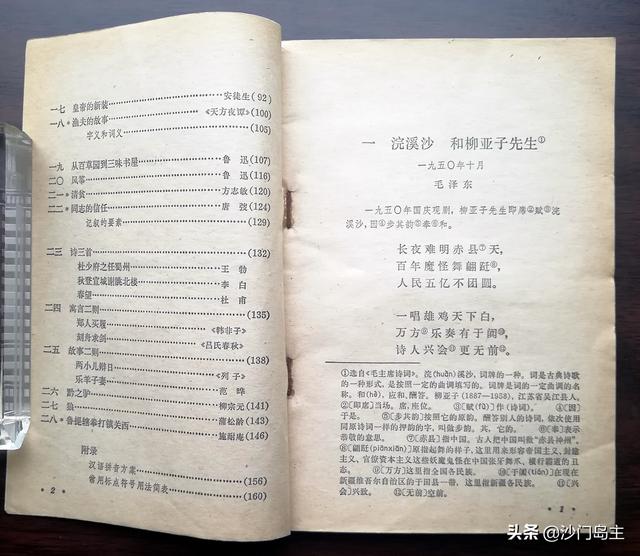 一七 皇帝的新装……安徒生(92)
一八*渔夫的故事……《天方夜谭》(100)
字义和词义……(105)
一九 从百草园到三味书屋……鲁迅(107)
二〇 风筝……鲁迅(116)
二一*清贫……方志敏(120)
二二*同志的信任……唐弢(124)
记叙的要素……(129)
二三 诗三首……(132)
杜少府之任蜀州……王勃
秋登宣城谢朓北楼……李白
春望……杜甫
二四 寓言二则……(135)
郑人买履……《韩非子》
刻舟求剑……《吕氏春秋》
二五 故事二则……(138)
两小儿辩日……《列子》
乐羊子妻……范晔
二六 黔之驴……柳宗元(141)
二七 狼……蒲松龄(143)
二八*鲁提辖拳打镇关西……施耐庵(146)
附录
汉语拼音方案……(156)
常用标点符号用法简表……(160)
• 2 •
一 浣溪沙 和柳亚子先生①
一九五〇年十月
毛泽东
一九五〇年国庆观剧，柳亚子先生即席②赋③浣
溪沙，因④步其韵⑤奉⑥和。
长夜难明赤县⑦天，
百年魔怪舞翩跹⑧，
人民五亿不团圆。
一唱雄鸡天下白，
万方⑨乐奏有于阗⑩，
诗人兴会⑪更无前⑫。
①选自《毛主席诗词》。浣(huàn)溪沙，词牌的一种。词是古典诗歌
的一种形式，是按照一定的曲调填写的。词牌是词的一定曲调的名
称。和(hè)，应和，酬答。柳亚子(1887—1958)，江苏省吴江县人。
②[即席]当场。席，座位。 ③[赋(fù)]作(诗词)。 ④[因]
于是。 ⑤[步其韵]按照它的原韵。酬答别人的诗词，依次使用
同原诗词一样的押韵的字，叫做步韵。其，它的。 ⑥[奉]表示
恭敬的意思。 ⑦[赤县]指中国。古人把中国叫做“赤县神州”。
⑧[翩跹(piānxiān)]原指起舞的样子，这里用来形容帝国主义、封建
主义、官僚资本主义这些妖魔鬼怪在中国张牙舞爪、横行霸道的丑
态。 ⑨[万方]这里指全国各民族。 ⑩[于阗(tián)]在现在
新疆维吾尔自治区的于田县一带，这里指新疆各民族。 ⑪[兴
会]兴致。 ⑫[无前]空前。
• 1 •
头条 @沙门岛主